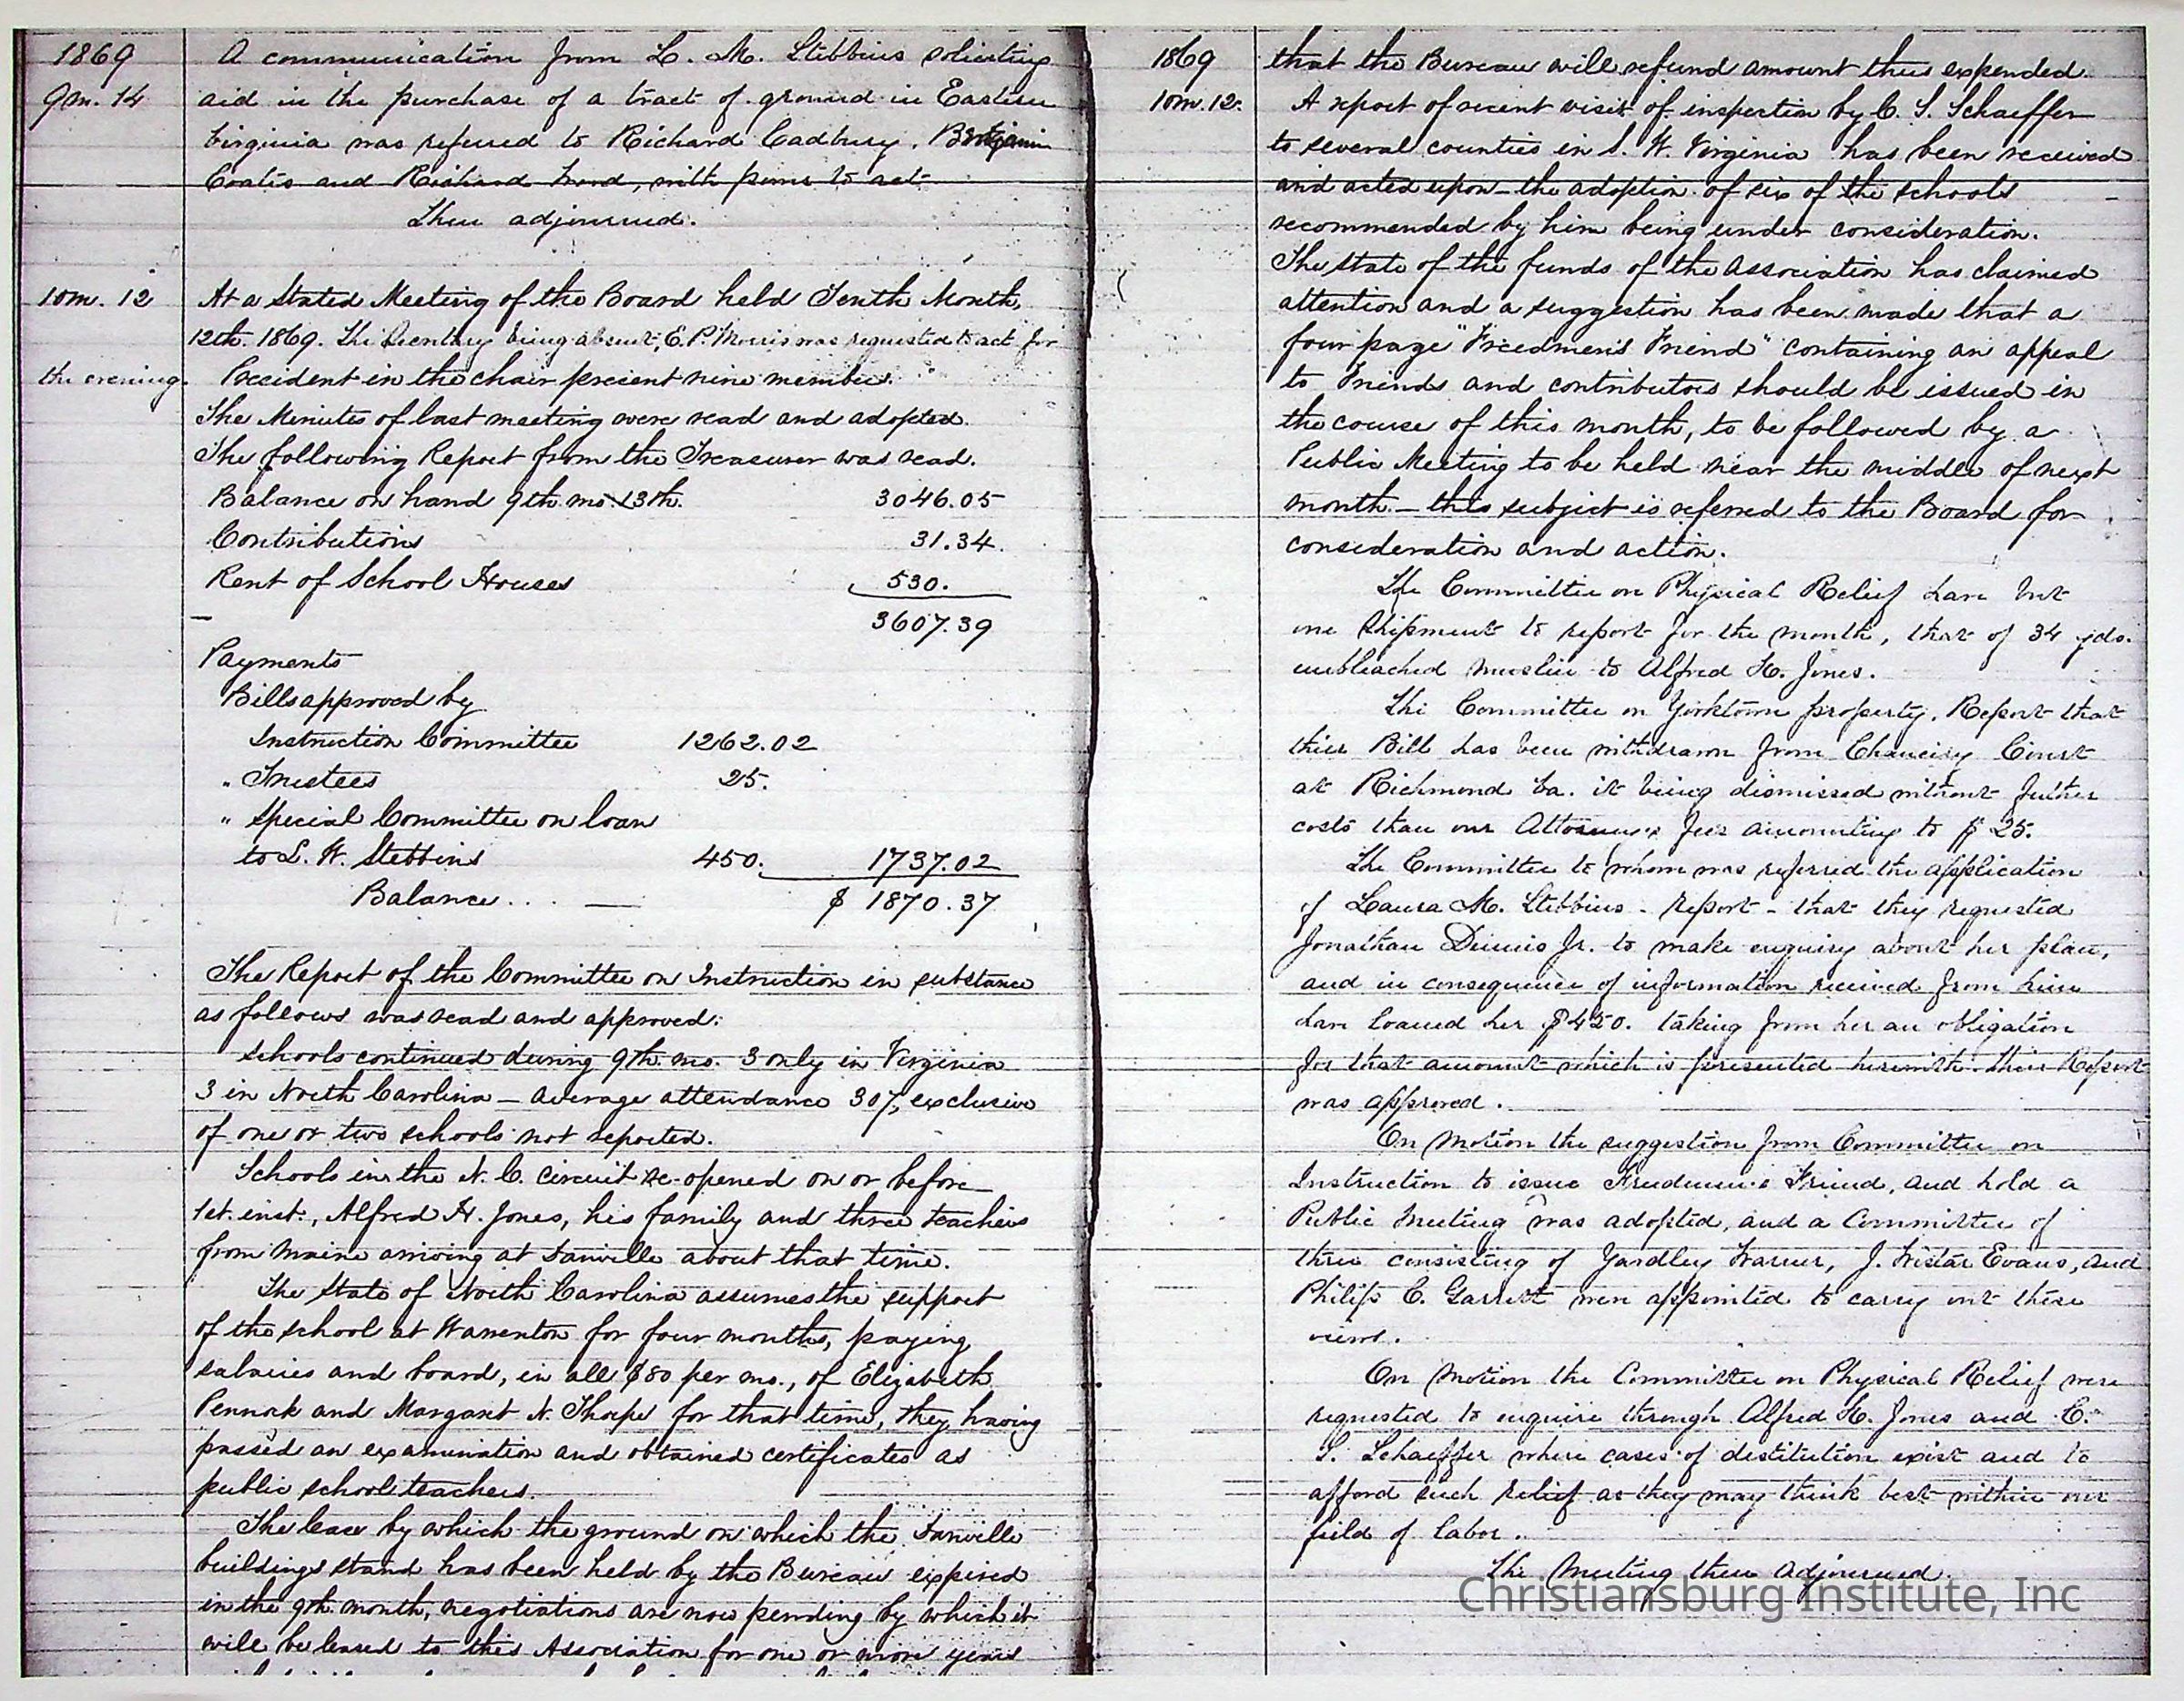 1869
9m. 14
A communication from L. M. Stebbins soliciting
aid in the purchase of a tract of ground in Eastern
Virginia was referred to Richard Cadbury, Benjamin
Coates and Richard Wood, with power to act.
Then adjourned.
10m. 12
At a Stated Meeting of the Board held Tenth Month,
12th. 1869. The Secretary being absent, E. P. Morris was requested to act for
the evening. President in the chair present nine members.
The Minutes of last meeting were read and adopted.
The following Report from the Treasurer was read.
Balance on hand 9th. mo. 13th. 3046.05
Contributions 31.34.
Rent of School Houses 530.
3607.39
Payments
Bills approved by
Instruction Committee 1262.02
" Trustees 25.
" Special Committee on loan
to L. W. Stebbins 450. 1737.02
Balance... — $ 1870.37
The Report of the Committee on Instruction in substance
as follows was read and approved:
Schools continued during 9th. mo. 3 only in Virginia
3 in North Carolina — average attendance 307, exclusive
of one or two schools not reported.
Schools in the N. C. circuit re-opened on or before
1st. inst., Alfred H. Jones, his family and three teachers
from Maine arriving at Danville about that time.
The State of North Carolina assumes the support
of the school at Warrenton for four months, paying
salaries and board, in all $80 per mo., of Elizabeth
Pennock and Margaret N. Thorpe for that time, they having
passed an examination and obtained certificates as
public school teachers.
The lease by which the ground on which the Danville
buildings stand has been held by the Bureau expired
in the 9th. month, negotiations are now pending by which it
will be leased to this Association for one or more years
1869
10m. 12.
that the Bureau will refund amount thus expended.
A report of recent visit of inspection by C. S. Schaeffer
to several counties in S. W. Virginia has been received
and acted upon — the adoption of six of the schools
recommended by him being under consideration.
The state of the funds of the Association has claimed
attention and a suggestion has been made that a
four page "Freedmen's Friend" containing an appeal
to Friends and contributors should be issued in
the course of this month, to be followed by a
Public Meeting to be held near the middle of next
month. — this subject is referred to the Board for
consideration and action.
The Committee on Physical Relief have but
one shipment to report for the month, that of 34 yds.
unbleached muslin to Alfred H. Jones.
The Committee on Yorktown property, Report that
their Bill has been withdrawn from Chancery Court
at Richmond Va. it being dismissed without further
costs than our Attorneys fees amounting to $25.
The Committee to whom was referred the application
of Laura M. Stebbins - report - that they requested
Jonathan Dennis Jr. to make enquiry about her plan,
and in consequence of information received from him
have loaned her $450. taking from her an obligation
for that amount which is presented herewith. their Report
was approved.
On motion the suggestion from Committee on
Instruction to issue Freedmen's Friend, and hold a
Public Meeting was adopted, and a Committee of
three consisting of Yardley Warner, J. Wistar Evans, and
Philip C. Garrett were appointed to carry out these
views.
On motion the Committee on Physical Relief were
requested to enquire through Alfred H. Jones and C.
S. Schaeffer where cases of destitution exist and to
afford such relief as they may think best within our
field of labor.
The Meeting then adjourned.
Christiansburg Institute, Inc